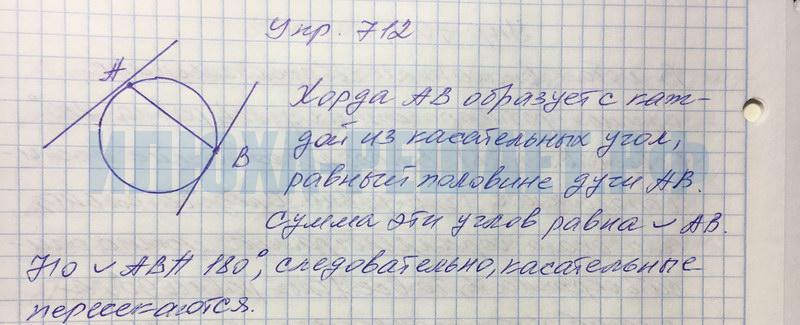 Упр. 712
A
B
Хорда AB образует с каж-
дой из касательных угол,
равный половине дуги AB.
Сумма эти углов равна ◡ AB.
◡ AB
180°, следовательно, касательные
пересекаются.